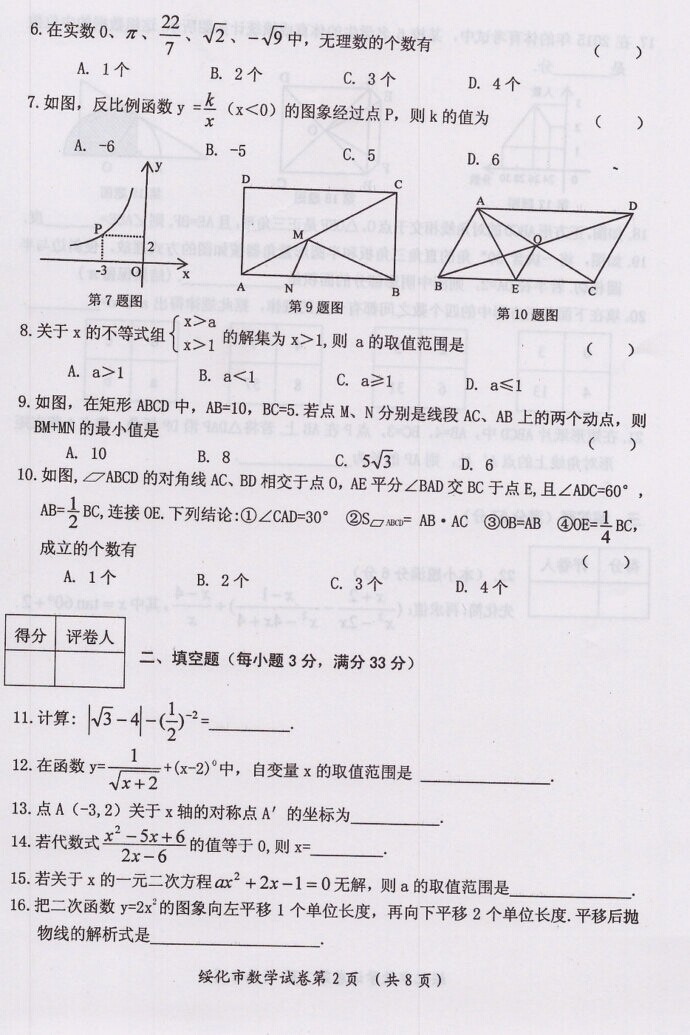 6.在实数0、π、22/7、√2、-√9中，无理数的个数有 （ ）
A. 1个 B. 2个 C. 3个 D. 4个
7.如图，反比例函数y =k/x（x＜0）的图象经过点P，则k的值为 （ ）
A. -6 B. -5 C. 5 D. 6
y P 2 -3 O x
D C M A N B
A D O B E C
第7题图 第9题图 第10题图
8.关于x的不等式组{x>a x>1 的解集为x>1,则 a的取值范围是 （ ）
A. a>1 B. a<1 C. a≥1 D. a≤1
9.如图，在矩形ABCD中，AB=10，BC=5.若点M、N分别是线段AC、AB上的两个动点，则
BM+MN的最小值是 （ ）
A. 10 B. 8 C. 5√3 D. 6
10.如图,▱ABCD的对角线AC、BD相交于点O，AE平分∠BAD交BC于点E,且∠ADC=60°，
AB=1/2BC,连接OE.下列结论:①∠CAD=30° ②S▱ABCD= AB·AC ③OB=AB ④OE=1/4BC,
成立的个数有 （ ）
A. 1个 B. 2个 C. 3个 D. 4个
得分 评卷人
二、填空题（每小题3分，满分33分）
11.计算: |√3-4|-(1/2)⁻²=________.
12.在函数y=1/√(x+2)+(x-2)⁰中，自变量x的取值范围是 ____________.
13.点A（-3,2）关于x轴的对称点A′的坐标为________.
14.若代数式(x²-5x+6)/(2x-6)的值等于0,则x=_______.
15.若关于x的一元二次方程ax²+2x-1=0无解，则a的取值范围是____________.
16.把二次函数y=2x²的图象向左平移1个单位长度，再向下平移2个单位长度.平移后抛
物线的解析式是________________.
绥化市数学试卷第2页 （共8页）